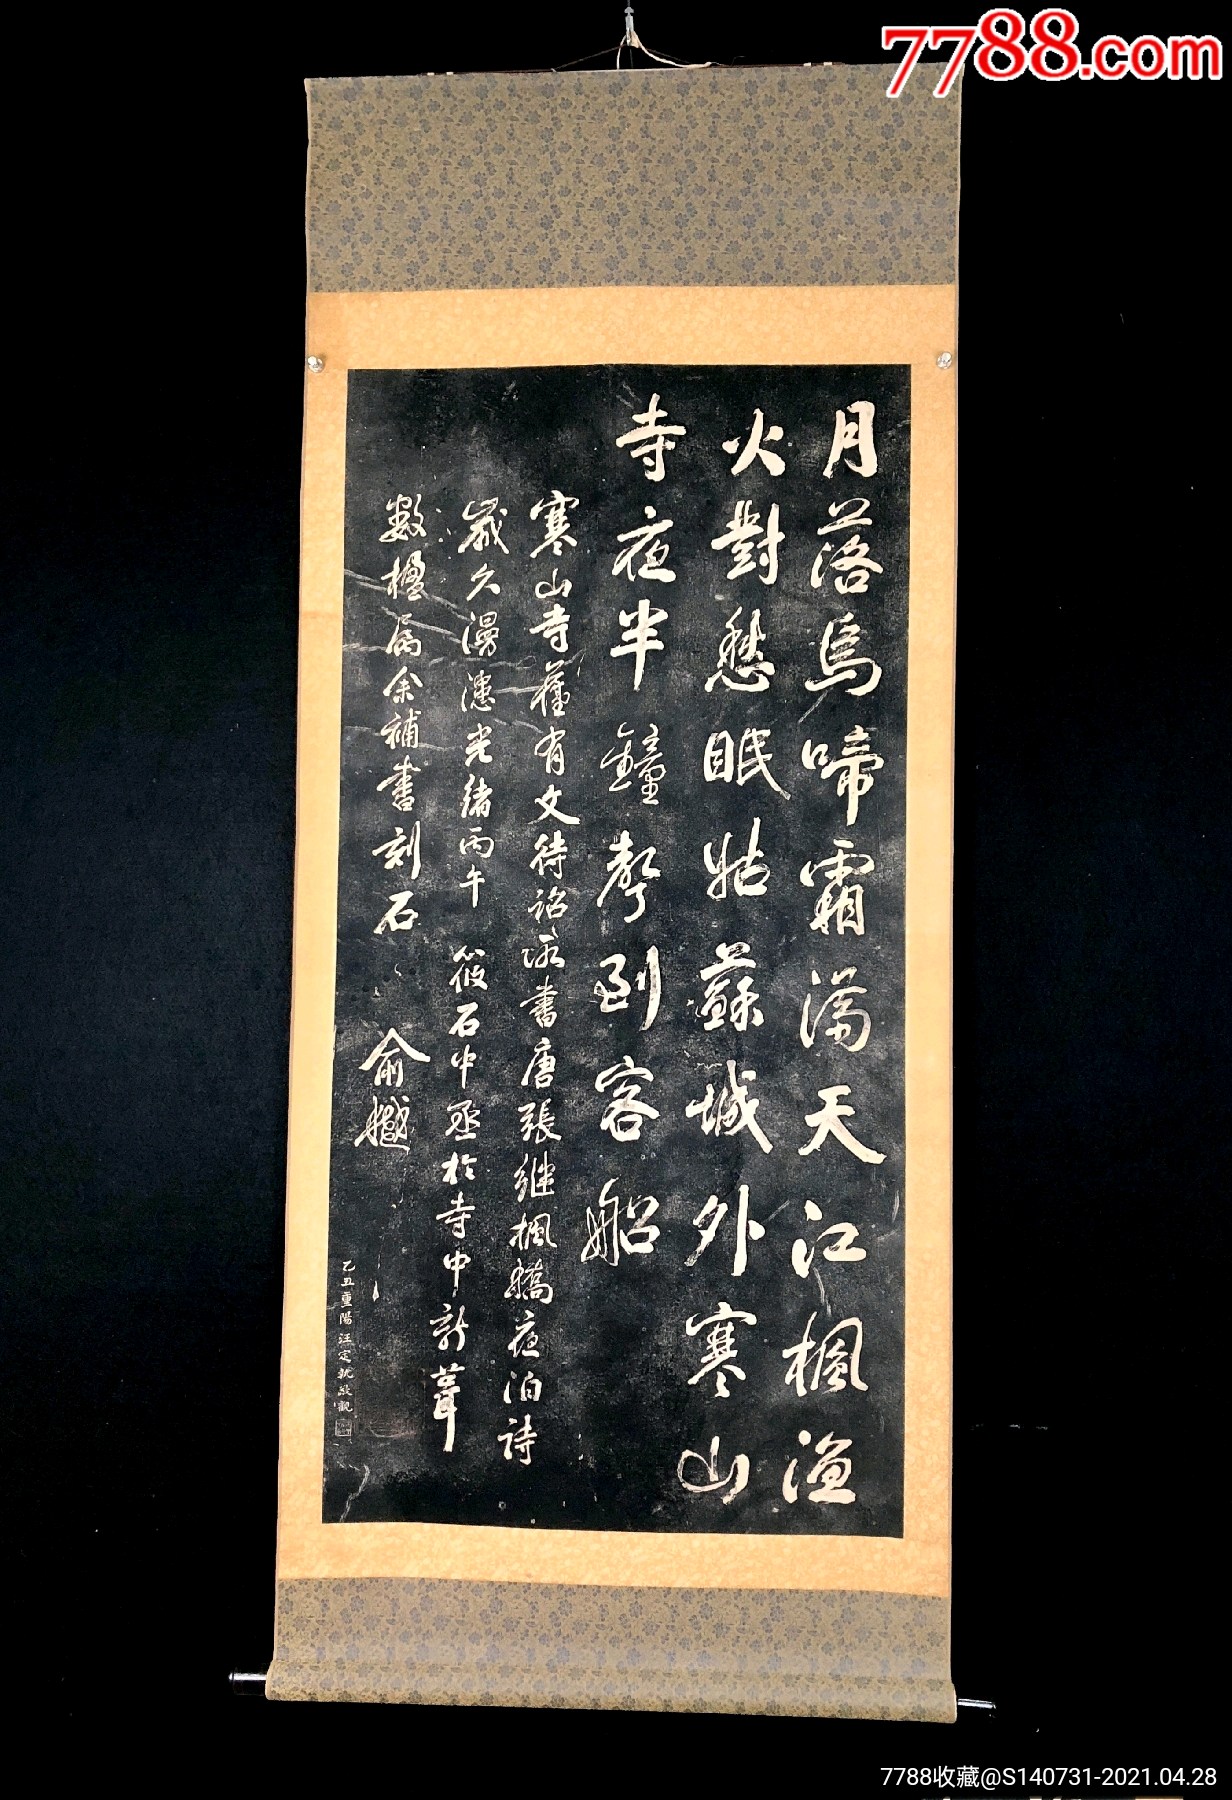 7788.com
月落烏啼霜滿天江楓漁
火對愁眠姑蘇城外寒山
寺夜半鐘聲到客船
寒山寺舊有文待詔所書唐張繼楓橋夜泊詩
歲久漫漶光緒丙午 筱石中丞於寺中新葺
數楹屬余補書刻石 俞樾
乙丑重陽汪定執敬觀
7788收藏@S140731-2021.04.28